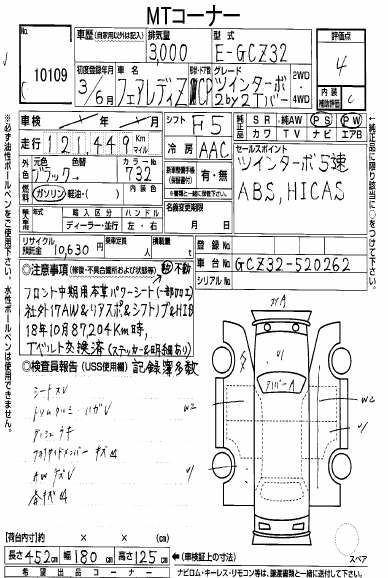 MTコーナー
10109
車歴 (自家用以外は記入)
排気量
3,000
型式
E-GCZ32
評価点
4
内装補助評価
C
初度登録年月
3/6月
車名
フェアレディZ
CP
グレード
ツインターボ
2by2 Tバー
2WD
4WD
車検
走行
121,449 Km
マイル
シフト
F5
純正品
SR
純AW
PS
PW
カワ
TV
ナビ
エアB
外色
元色
ブラック
色替
カラーNo.
732
内装色
冷房
AAC
セールスポイント
ツインターボ 5速
ABS, HICAS
燃料
ガソリン・軽油・( )
新車整備手帳(保証書付)
有・無
輸入車
年式
輸入区分
ディーラー・並行
ハンドル
左・右
名義変更期限
月
日
リサイクル預託金
10,630円
乗車定員
人
積載量
t
登録No.
車台No.
GCZ32-520262
シリアルNo.
◎注意事項(修復・不具合箇所および状態等)
フロント中期用本革パワーシート(一部カロエ)
社外17AW&リアスポ&シフトノブ&HID
18年10月87,204Km時,
Tベルト交換済(ステッカー&明細あり)
◎検査員報告(USS使用欄)
記録簿多数
シートスレ
ダッシュ
キズ
AWキズ
各キズ
ガA
W2
U1
W2
U1
アバーA
【荷台内寸】約
×
×
(cm)
長さ 452
幅 180
高さ 125
(cm)
←(車検証上の寸法)
スペア
希望出品コーナー
ナビロム・キーレス・リモコン等は、譲渡書類と一緒に送付して下さい。
※必ず油性ボールペンをご使用下さい。水性ボールペンは使用できません。
←純正品に限り該当に○をつけて下さい。